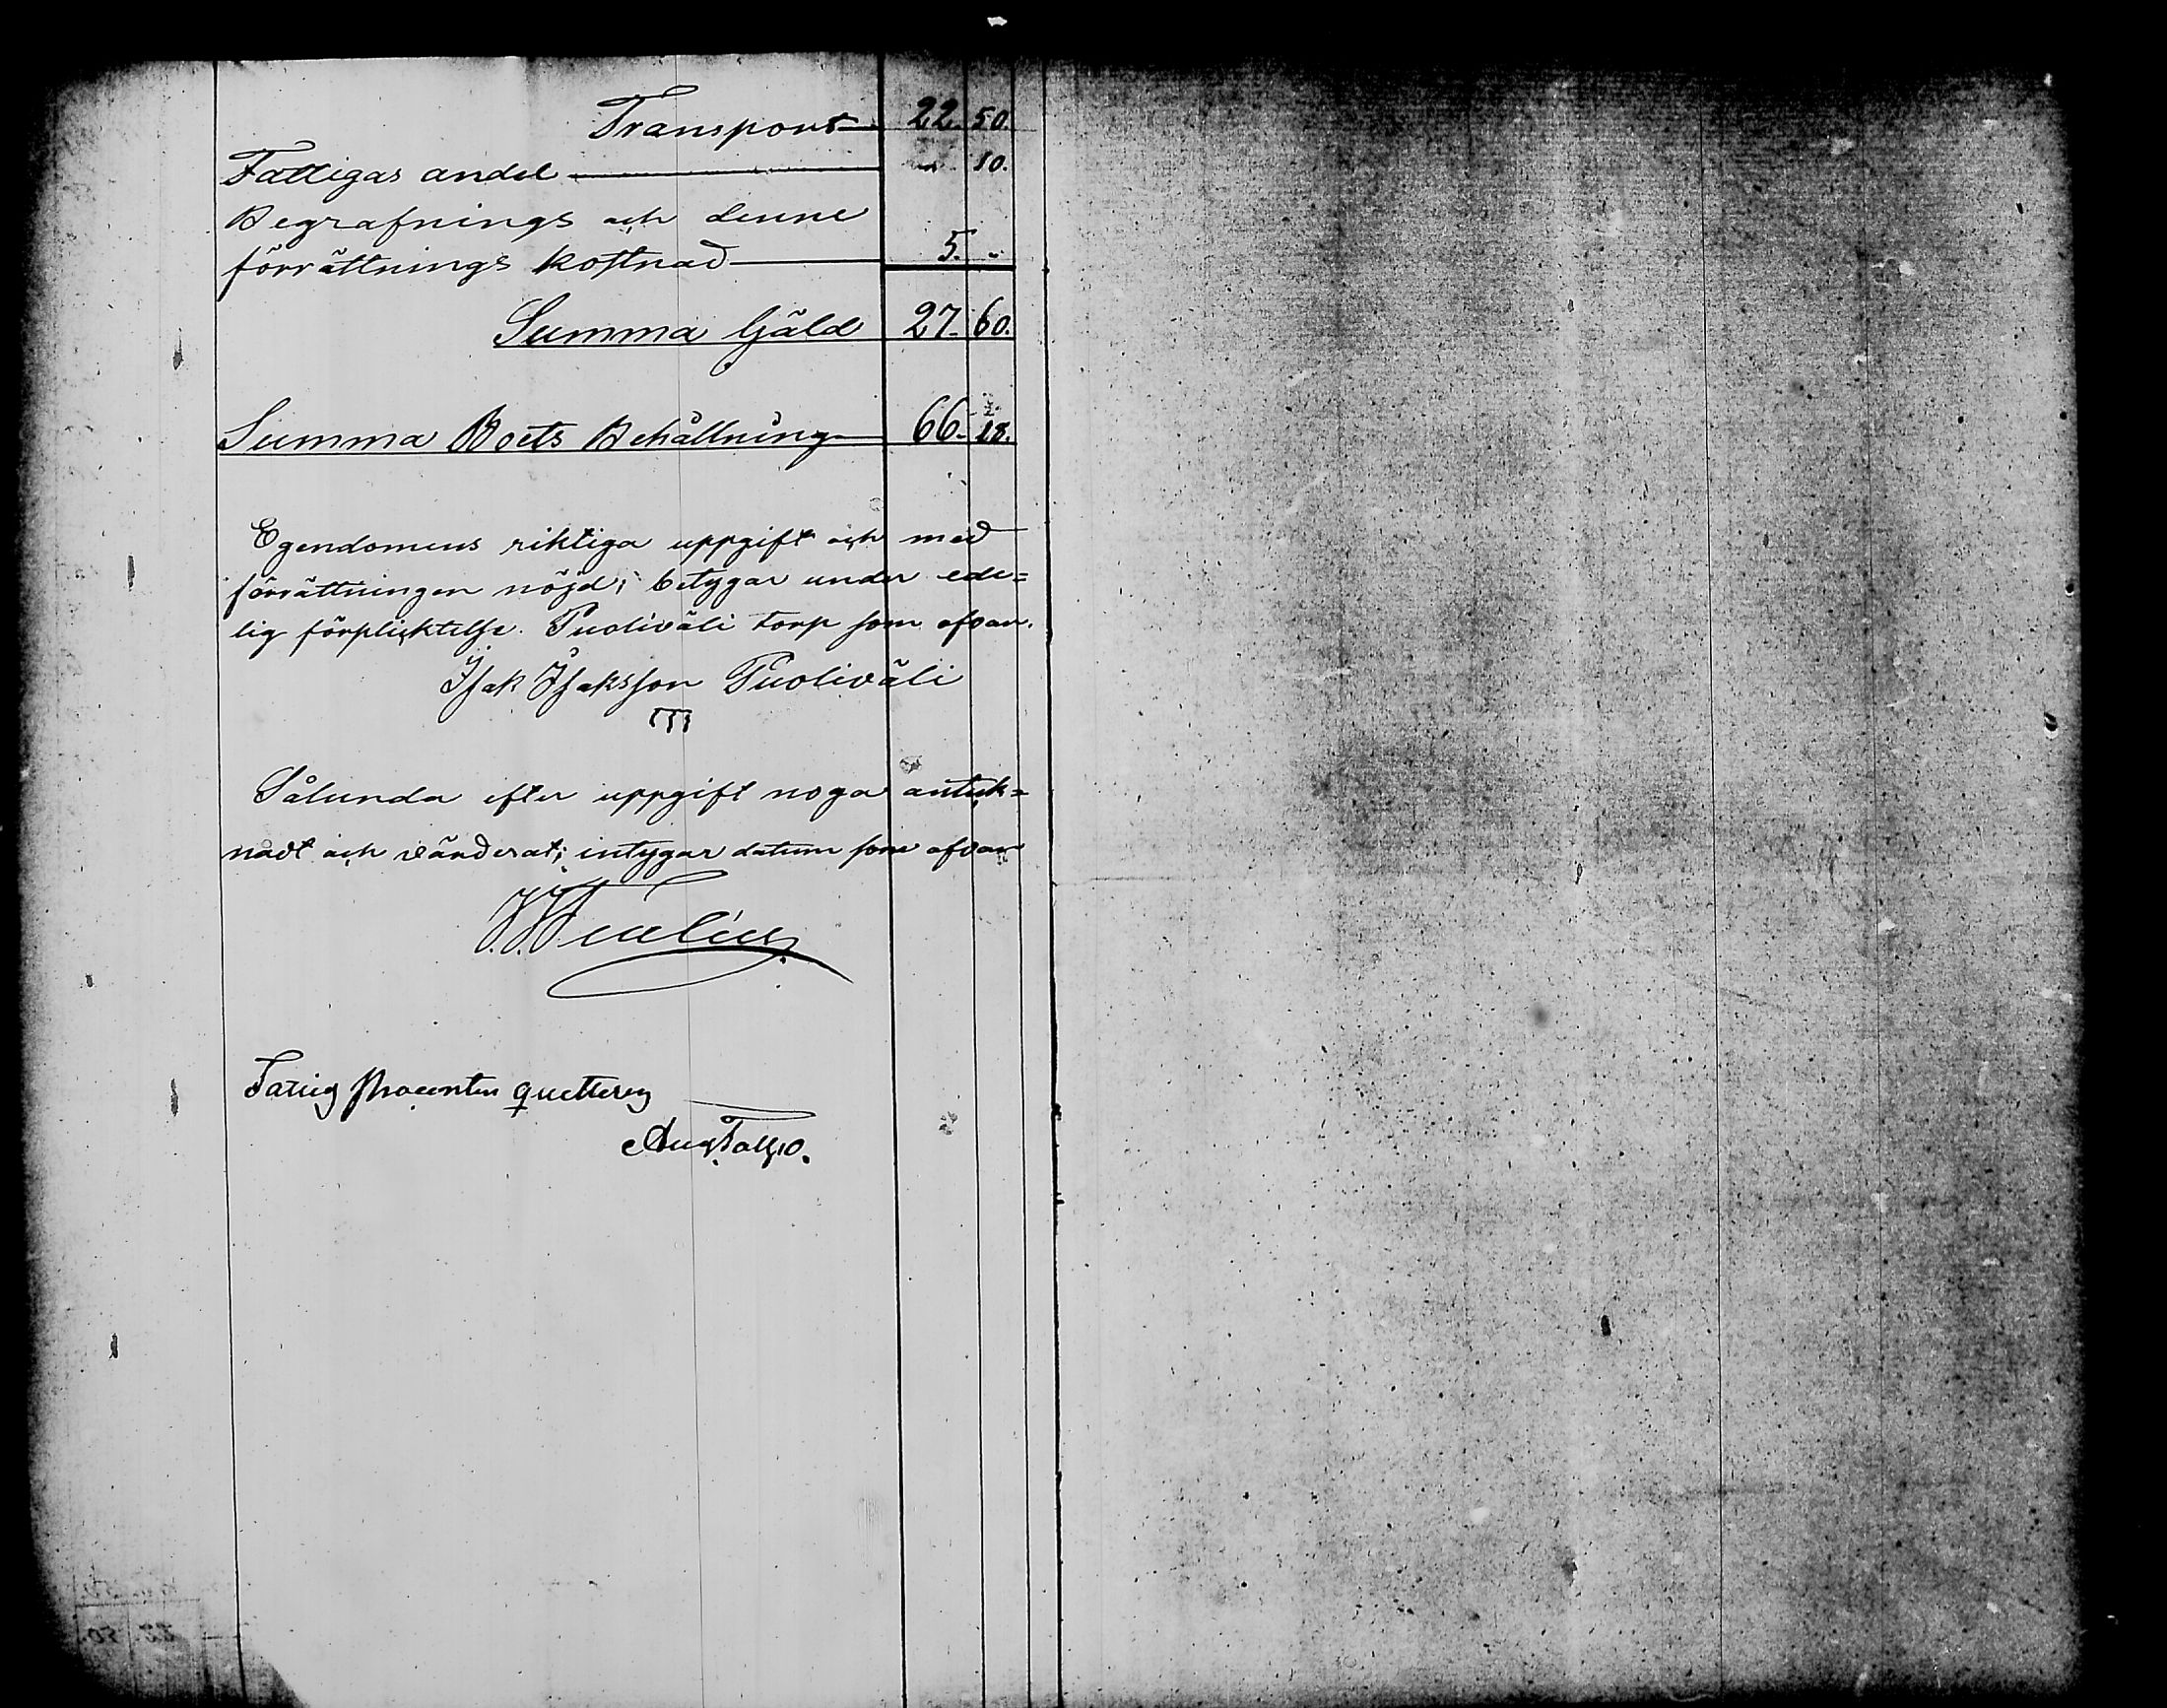 Transport 22. 50.
Fattigas andel 10.
Begrafnings och denne
förrättnings kostnad 5. -
Summa Gäld 27. 60.
Summa Boets Behållning 66. 18.
Egendomens riktiga uppgift och med
förrättningen nöjd; betygar under ede=
lig förpliktelse. Puoliväli torp som ofvan.
Isak Isaksson Puoliväli
Sålunda efter uppgift noga anteck=
nadt och värderat; intygar datum som ofvan
Fattig procenten quetteras
Aug
22. 50.